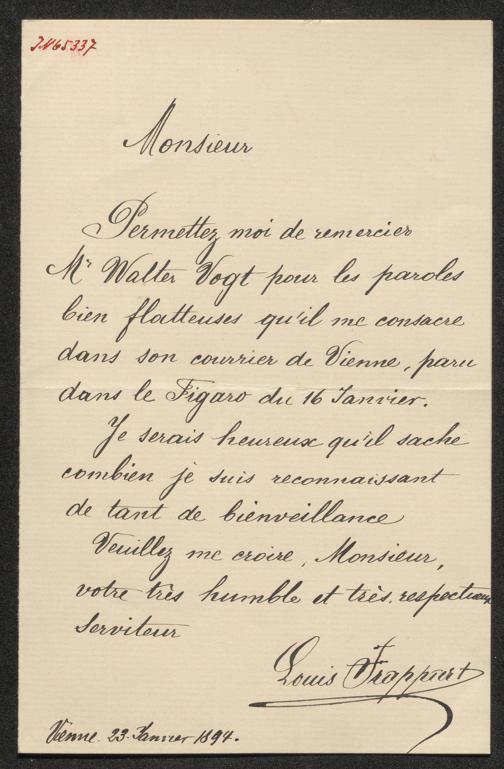 JN65337
Monsieur
Permettez moi de remercier
Mr Walter Vogt pour les paroles
bien flatteuses qu'il me consacre
dans son courrier de Vienne, paru
dans le Figaro du 16 Janvier.
Je serais heureux qu'il sache
combien je suis reconnaissant
de tant de bienveillance
Veuillez me croire, Monsieur,
votre très humble et très respectueux
serviteur
Louis Frappart
Vienne 23 Janvier 1894.